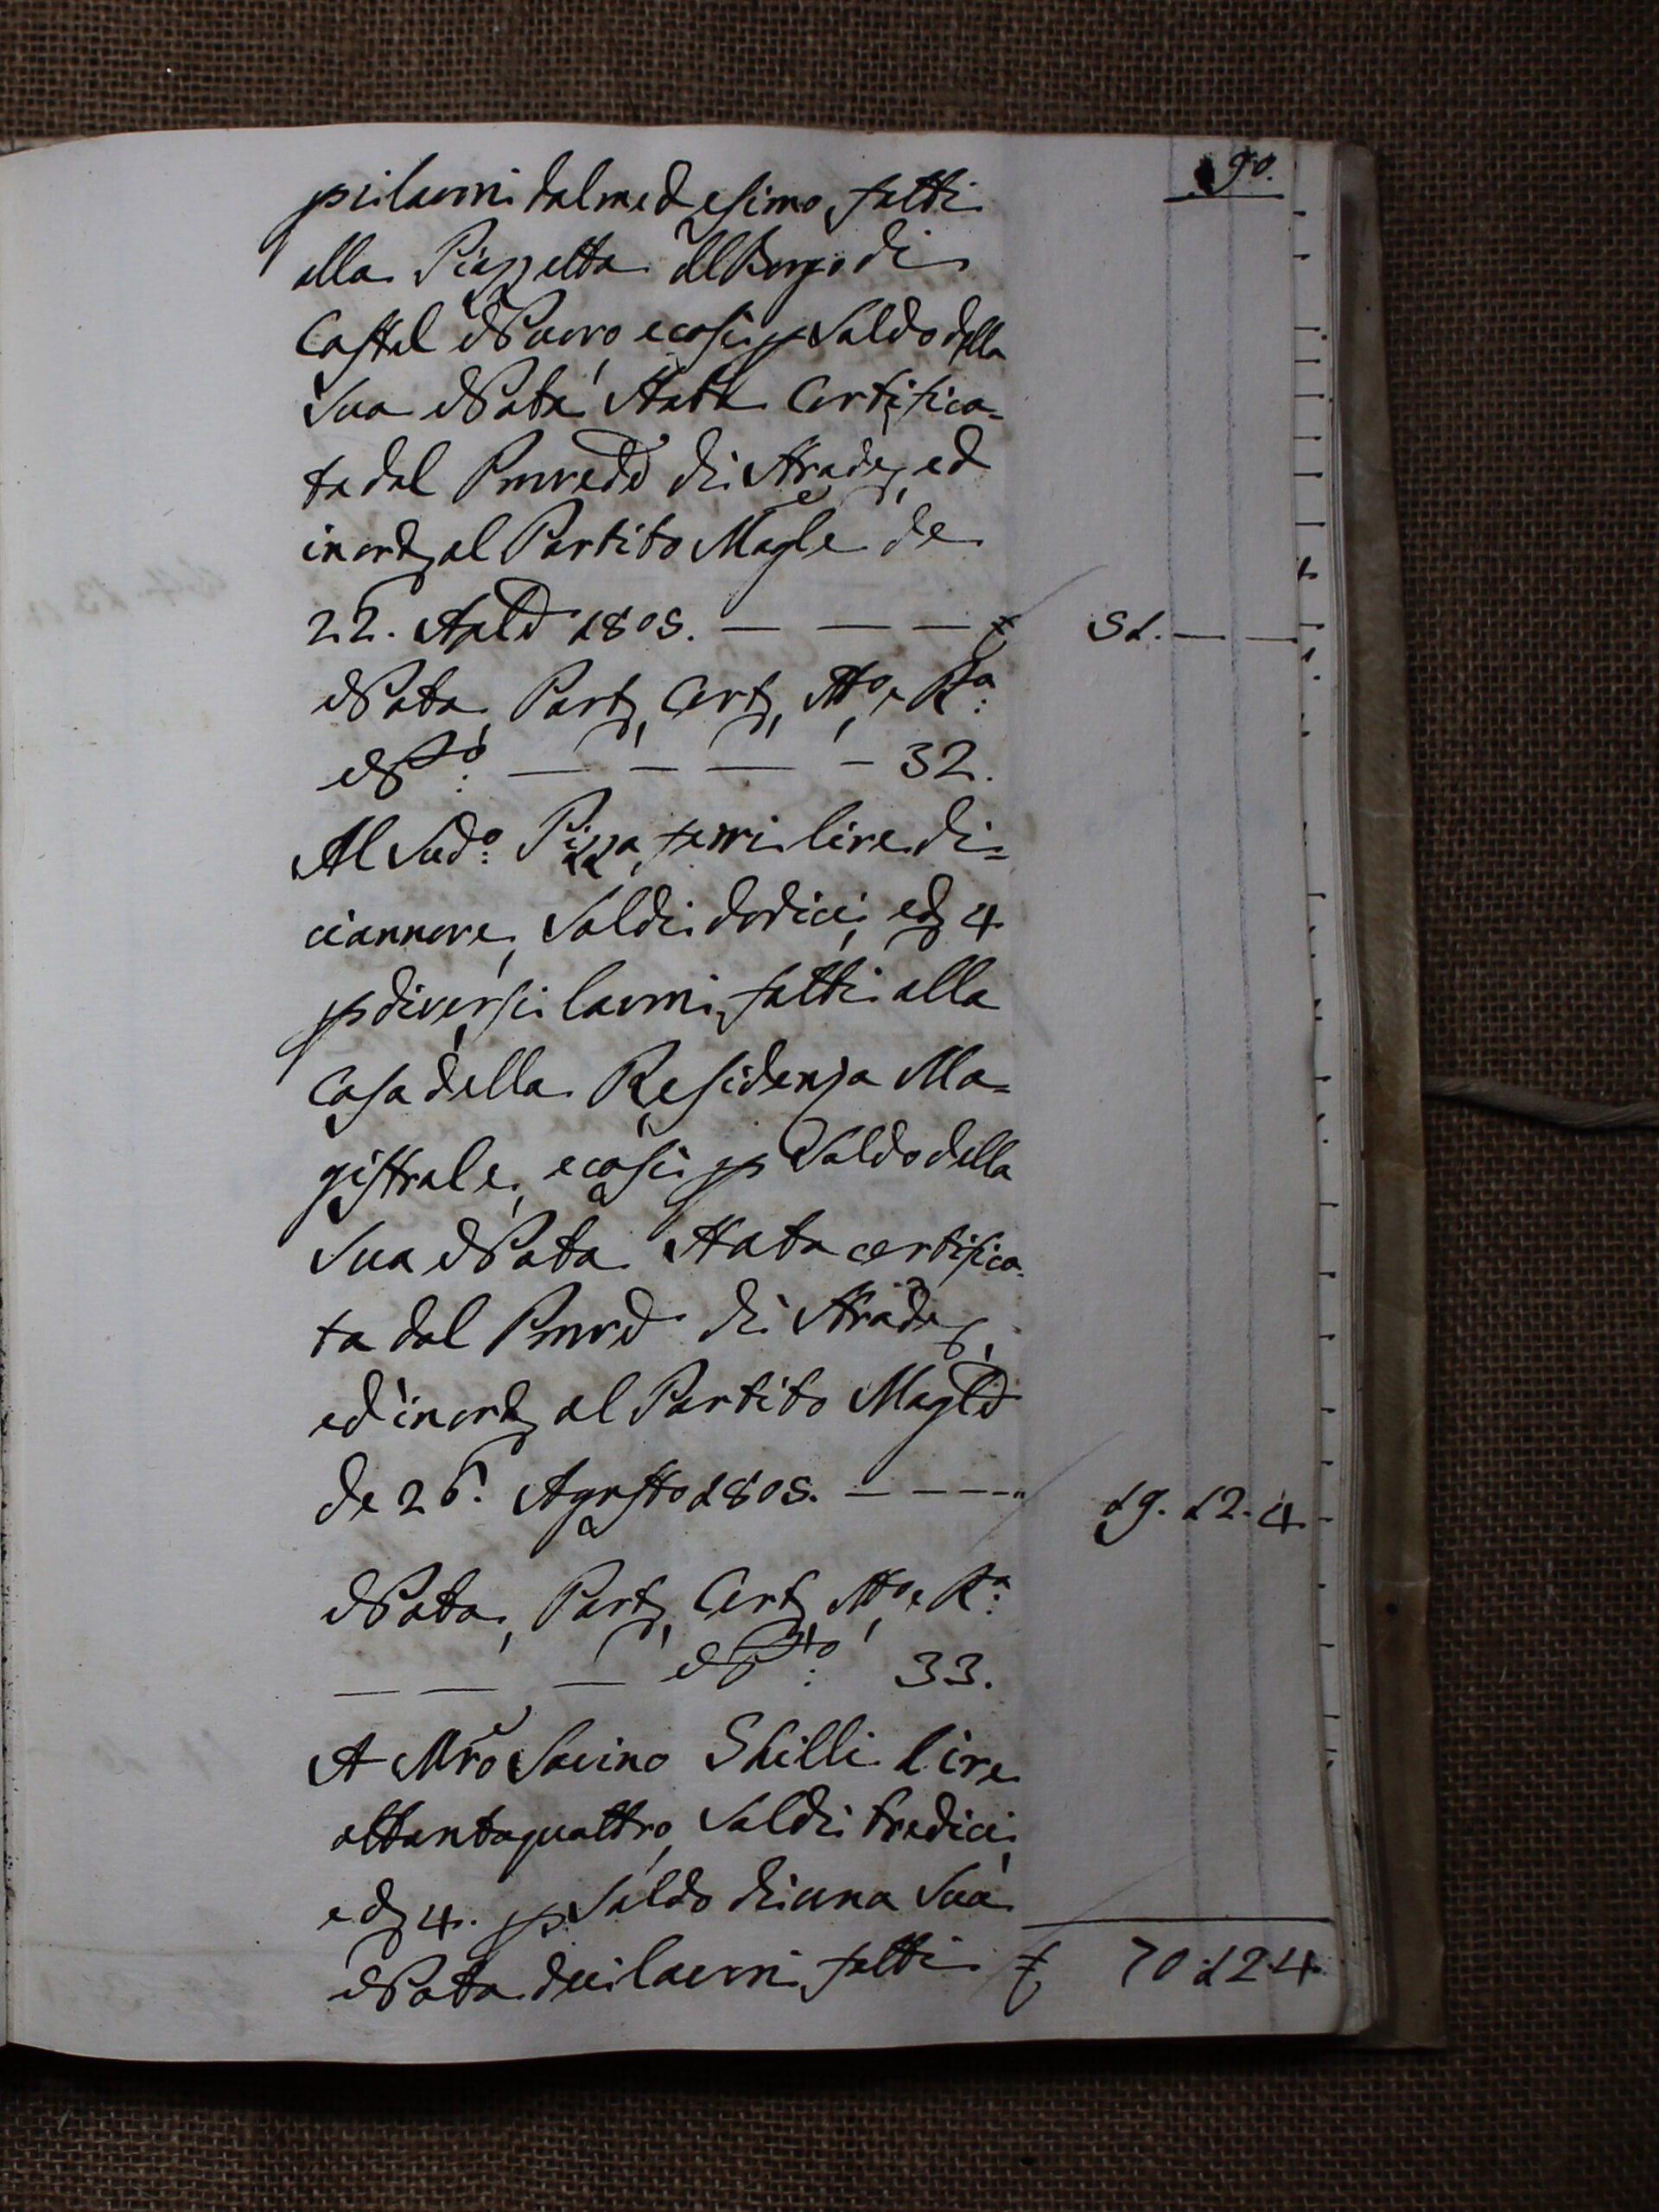 90.
p i lavori dal medesimo fatti
alla Piazzetta del Borgo di
Castel Nuovo e così p Saldo della
Sua Nota Stata Certifica=
ta dal Provved di Strade, ed
in ord al Partito Magle de
22. Aple 1805. — — — £ 51. — —
Nota, Part, Cert, Sto, e Ra:
No: — — — — 32.
Al Sudo: Pizzaferri lire di=
ciannove, Soldi dodici, e d 4
p diversi lavori, fatti alla
Casa della Residenza Ma=
gistrale, e così p Saldo della
Sua Nota Stata certifica=
ta dal Provd di Strade,
ed in ord al Partito Magle
de 26. Agosto 1805. — — — " 19. 12. 4
Nota, Part, Cert, Sto, e Ra:
— — — No: 33.
A Mro Savino Shilli lire
ottantaquattro, Soldi tredici,
e d 4. p Saldo di una Sua
Nota dei lavori, fatti £ 70 12 4